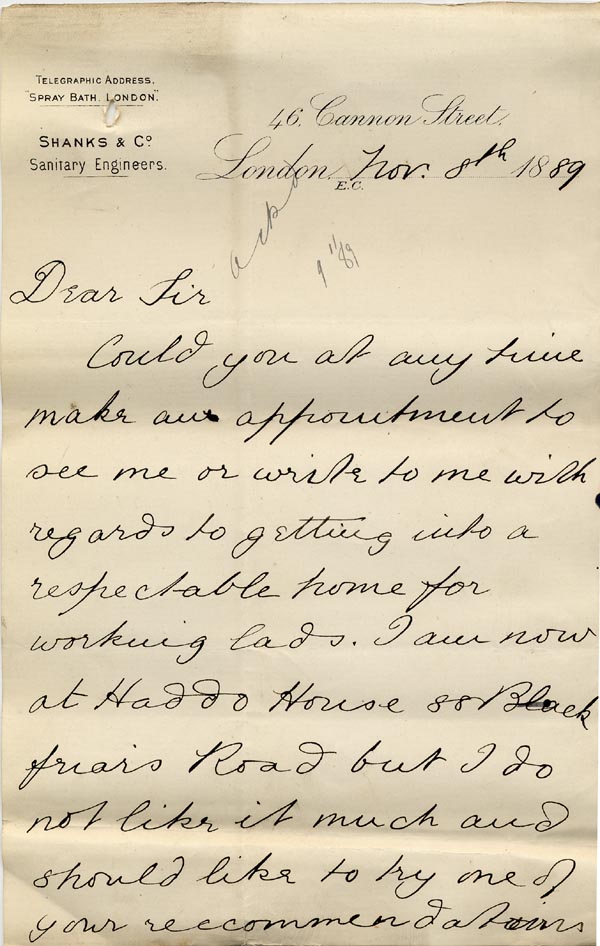 TELEGRAPHIC ADDRESS.
"SPRAY BATH. LONDON."
SHANKS & Co.
Sanitary Engineers.
46, Cannon Street,
London, Nov. 8th 1889
E.C.
ackd
9/11/89
Dear Sir
Could you at any time
make an appointment to
see me or write to me with
regards to getting into a
respectable home for
working lads. I am now
at Haddo House 88 Black
friars Road but I do
not like it much and
should like to try one of
your reccommendations